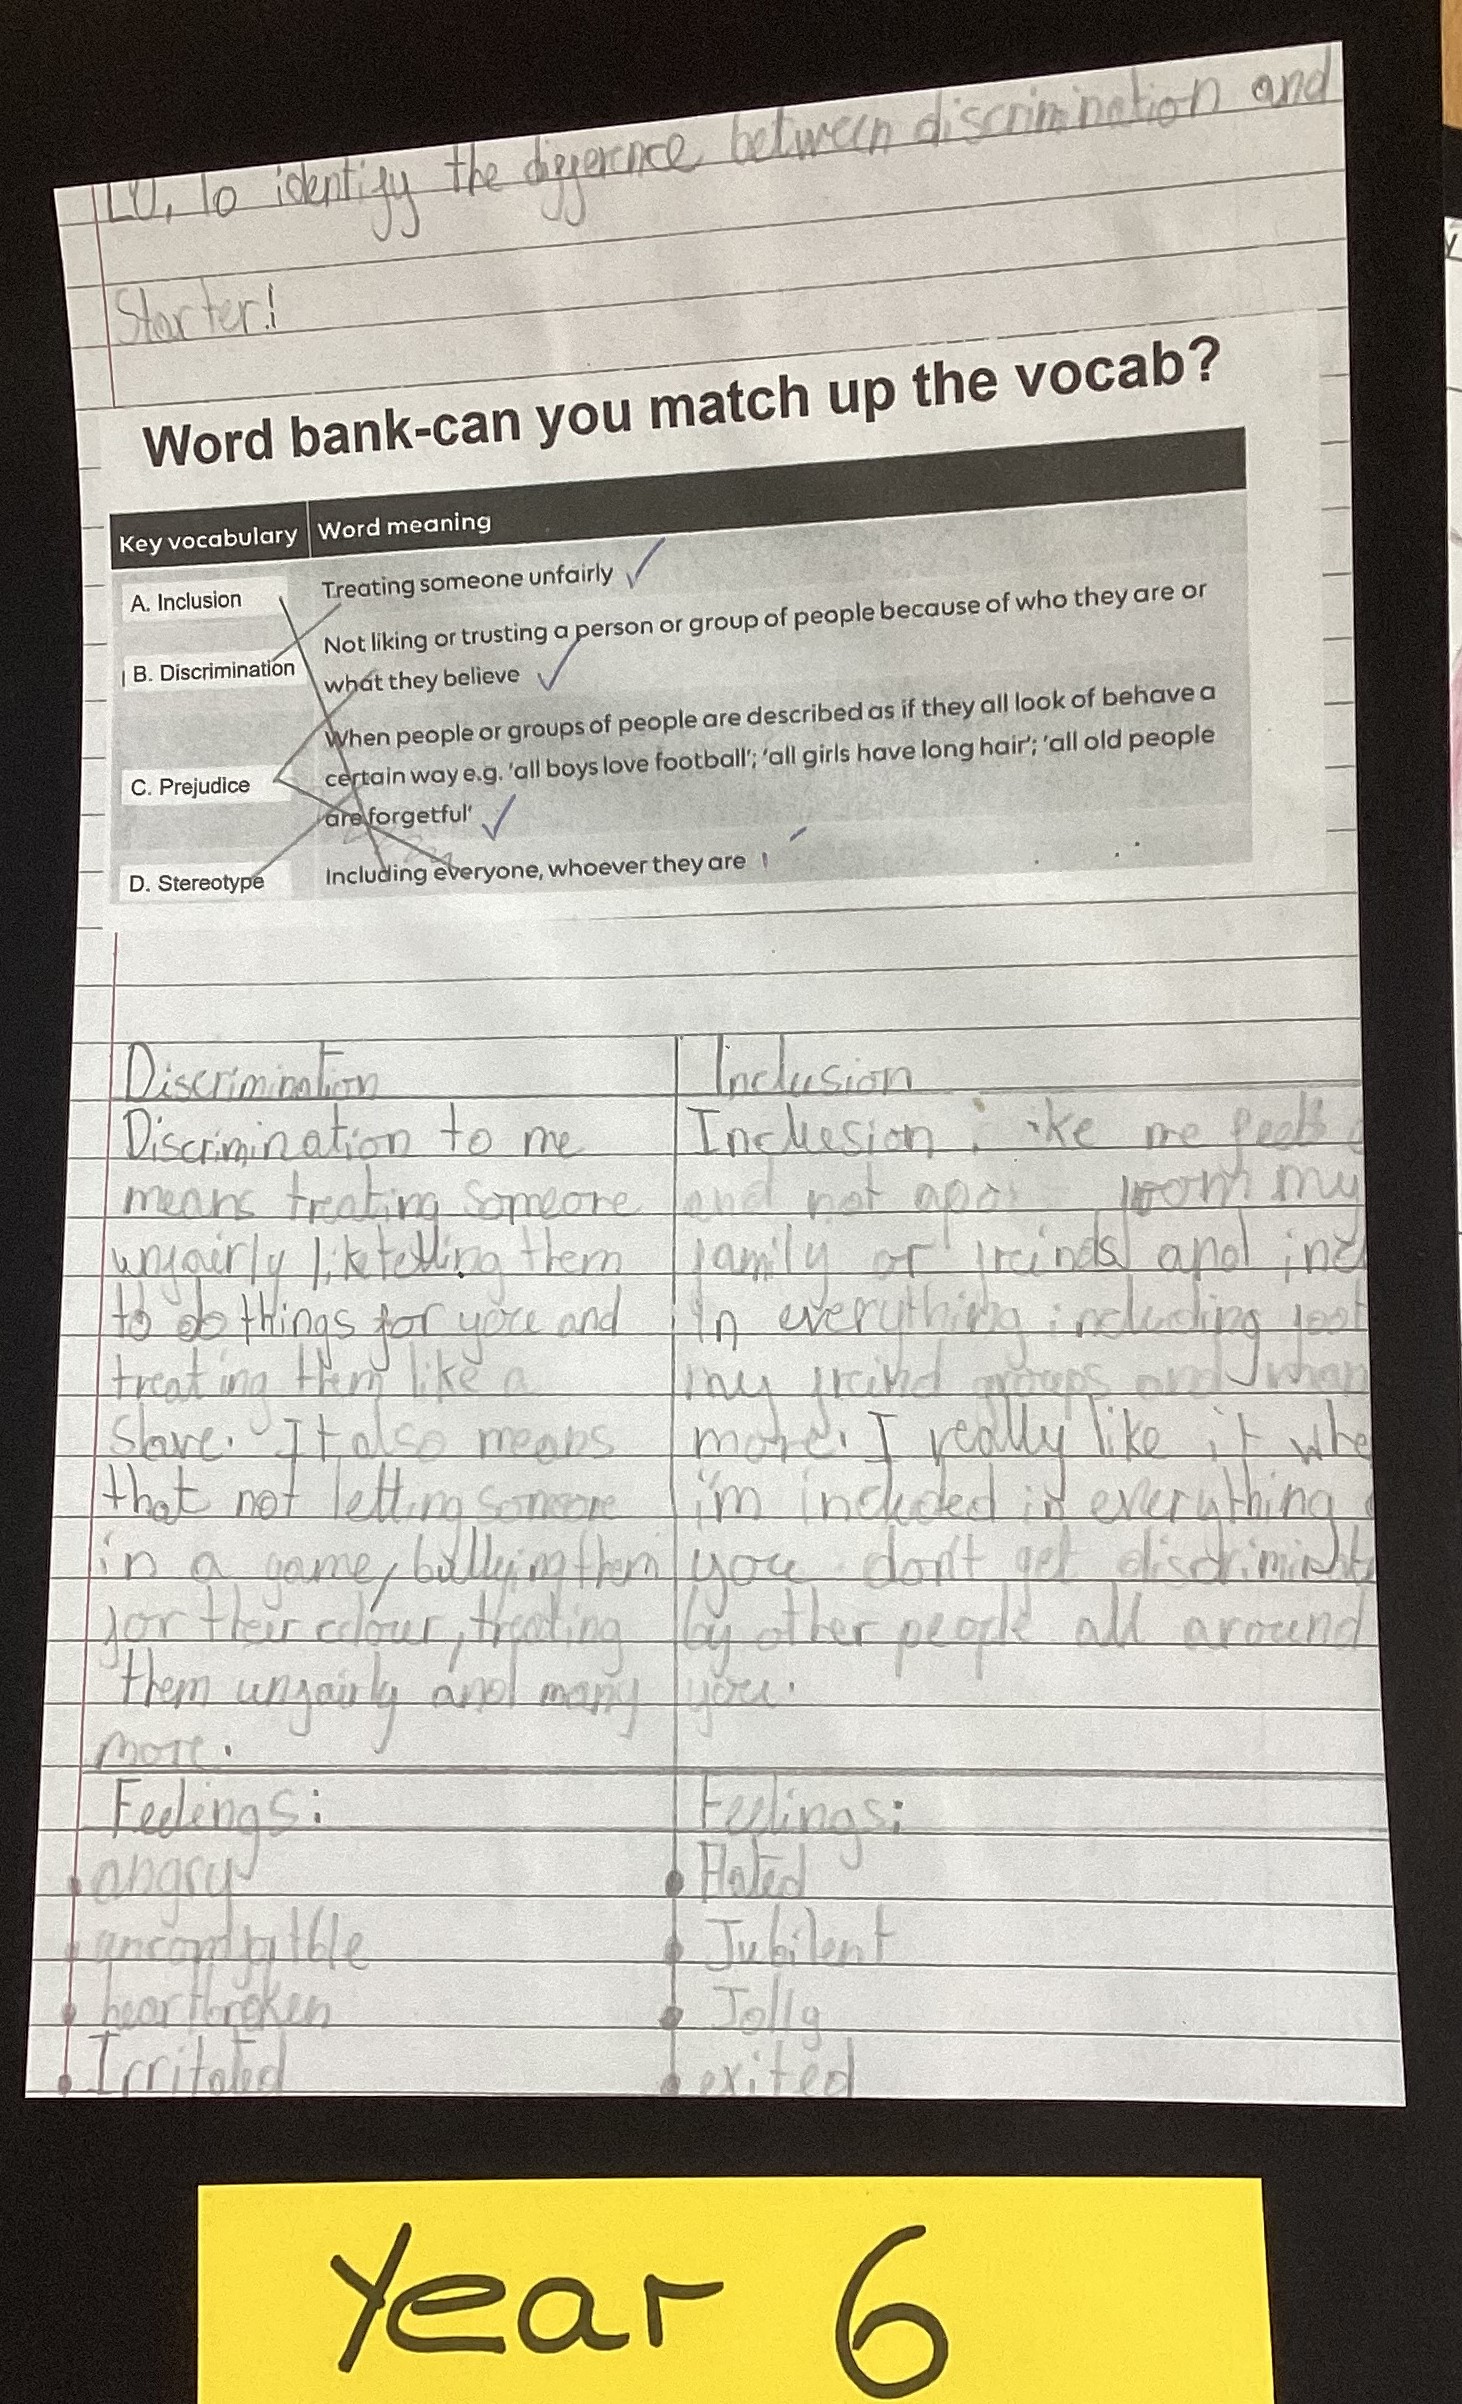 LO, To identify the difference between discrimination and
Starter!
Word bank-can you match up the vocab?
Key vocabulary Word meaning
A. Inclusion
Treating someone unfairly
B. Discrimination
Not liking or trusting a person or group of people because of who they are or
what they believe
C. Prejudice
When people or groups of people are described as if they all look of behave a
certain way e.g. 'all boys love football'; 'all girls have long hair'; 'all old people
are forgetful'
D. Stereotype
Including everyone, whoever they are
Discrimination
Discrimination to me
means treating someone
unfairly like telling them
to do things for you and
treating them like a
slave. It also means
that not letting someone
in a game, bullying them
for their colour, treating
them unfairly and many
more.
Feelings:
angry
heartbroken
Irritated
Inclusion
Inclusion me
and not from my
family or freinds and inc
in everything including foot
my freind groups and
more. I really like it whe
i'm included in everything
you don't get discriminat
by other people all around
you.
Feelings:
Jubilent
Jolly
exited
Year 6